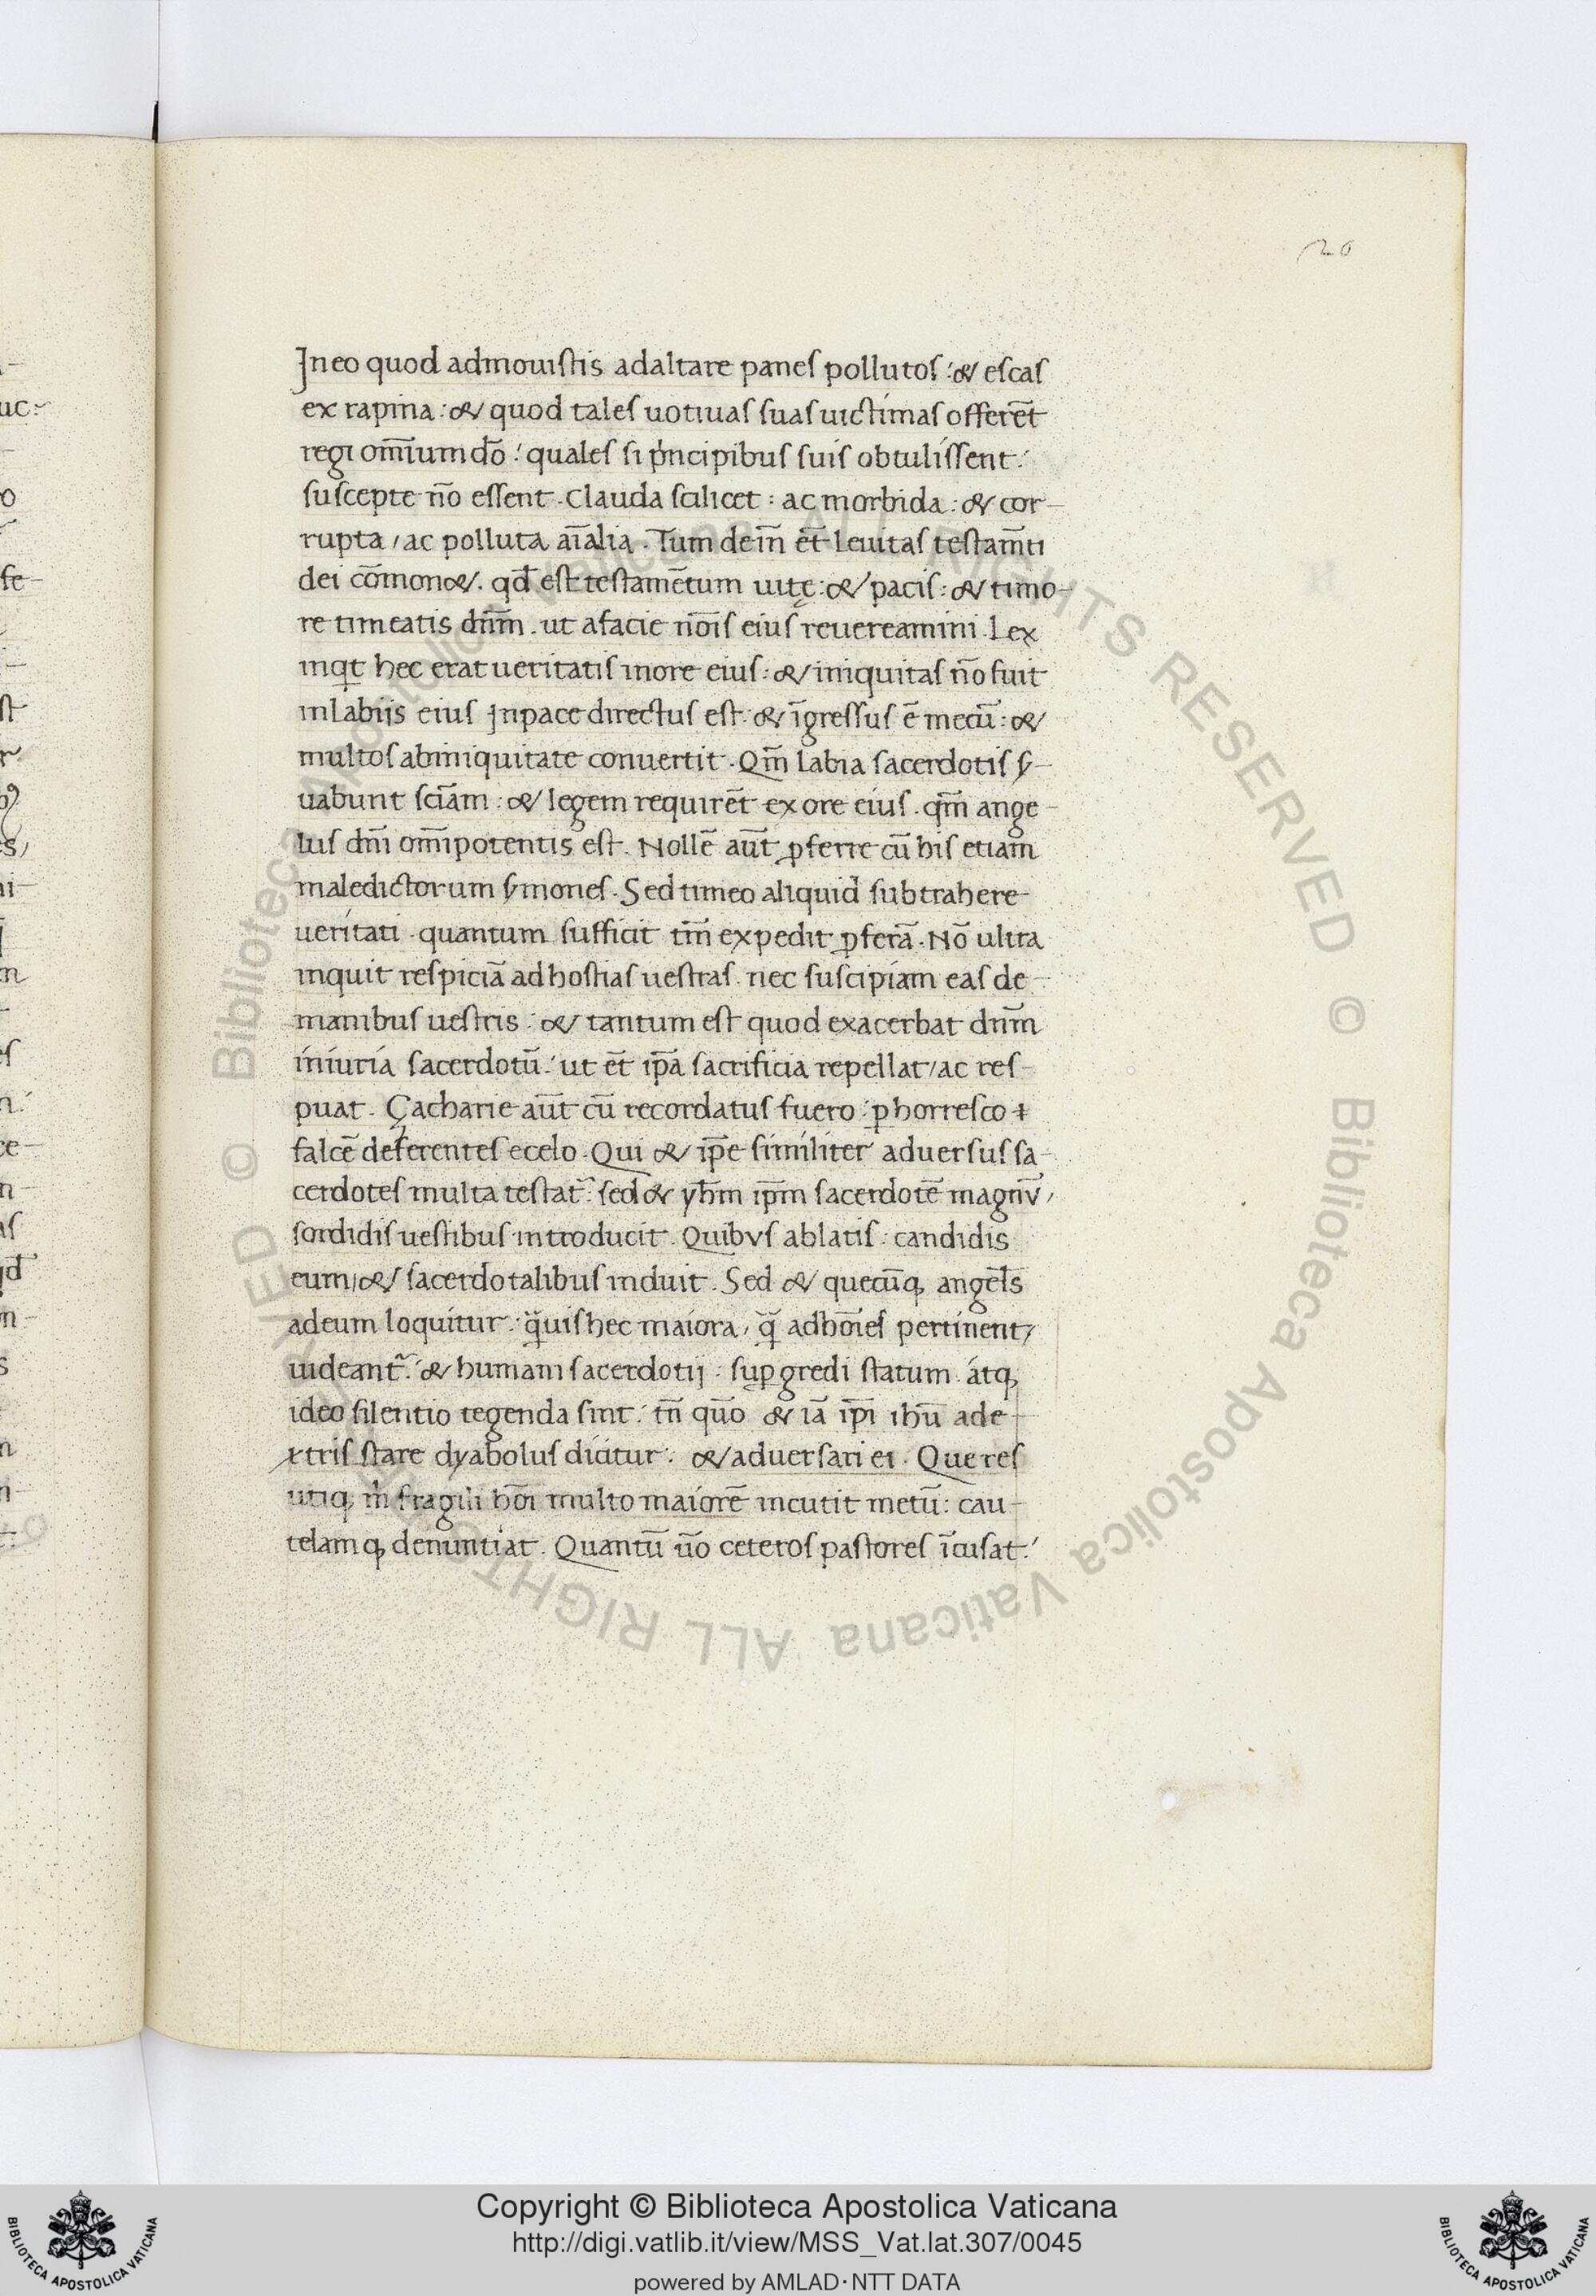 20
Jn eo quod admouistis ad altare panes pollutos: & escas
ex rapina: & quod tales uotiuas suas uictimas offerēt
regi om̄ium dō: quales si pͥncipibus suis obtulissent:
suscepte nō essent. Clauda scilicet: ac morbida: & cor-
rupta, ac polluta aīalia. Tum dein̄ et̄ Leuitas testam̄ti
dei cōmon&. qđ est testamētum uitę: & pacis: & timo-
re timeatis dn̄m. ut a facie nōis eius reuereamini. Lex
inqͥt hec erat ueritatis in ore eius: & iniquitas nō fuit
in labiis eius Jn pace directus est: & īgressus ē mecū: &
multos ab iniquitate conuertit. Qm̄ Labia sacerdotis ẜ-
uabunt sciām: & legem requirēt ex ore eius. qm̄ ange-
lus dn̄i om̄ipotentis est. Nollē aūt ꝓferre cū his etiam
maledictorum ẜmones. Sed timeo aliquid subtrahere
ueritati. quantum sufficit tm̄ expedit ꝓferā. Nō ultra
inquit respiciā ad hostias uestras. nec suscipiam eas de
manibus uestris: & tantum est quod exacerbat dn̄m
iniuria sacerdotū: ut et̄ ip̄a sacrificia repellat, ac res-
puat. Çacharie aūt cū recordatus fuero: ꝑhorresco ɫ
falcē deferentes e celo. Qui & ip̄e similiter aduersus sa-
cerdotes multa testat᷑: sed & yħm ip̄m sacerdotē magnū,
sordidis uestibus introducit. Quibus ablatis: candidis
eum, & sacerdotalibus induit. Sed & quecūqꝫ angel̄s
ad eum loquitur: qᷓuis hec maiora, qᷓ ad hōies pertinent,
uideant᷑: & humani sacerdotij: suꝑgredi statum. atqꝫ
ideo silentio tegenda sint: tn̄ quō & iā ip̄i ihū a de-
xtris stare dyabolus dicitur: & aduersari ei. Que res
utiqꝫ mͥ fragili hōi multo maiorē incutit metū: cau-
telamqꝫ denuntiat. Quantū ūo ceteros pastores īcusat:
© Biblioteca Apostolica Vaticana ALL RIGHTS RESERVED © Biblioteca Apostolica Vaticana ALL RIGHTS RESERVED
Copyright © Biblioteca Apostolica Vaticana
http://digi.vatlib.it/view/MSS_Vat.lat.307/0045
powered by AMLAD·NTT DATA
BIBLIOTECA APOSTOLICA VATICANA
BIBLIOTECA APOSTOLICA VATICANA